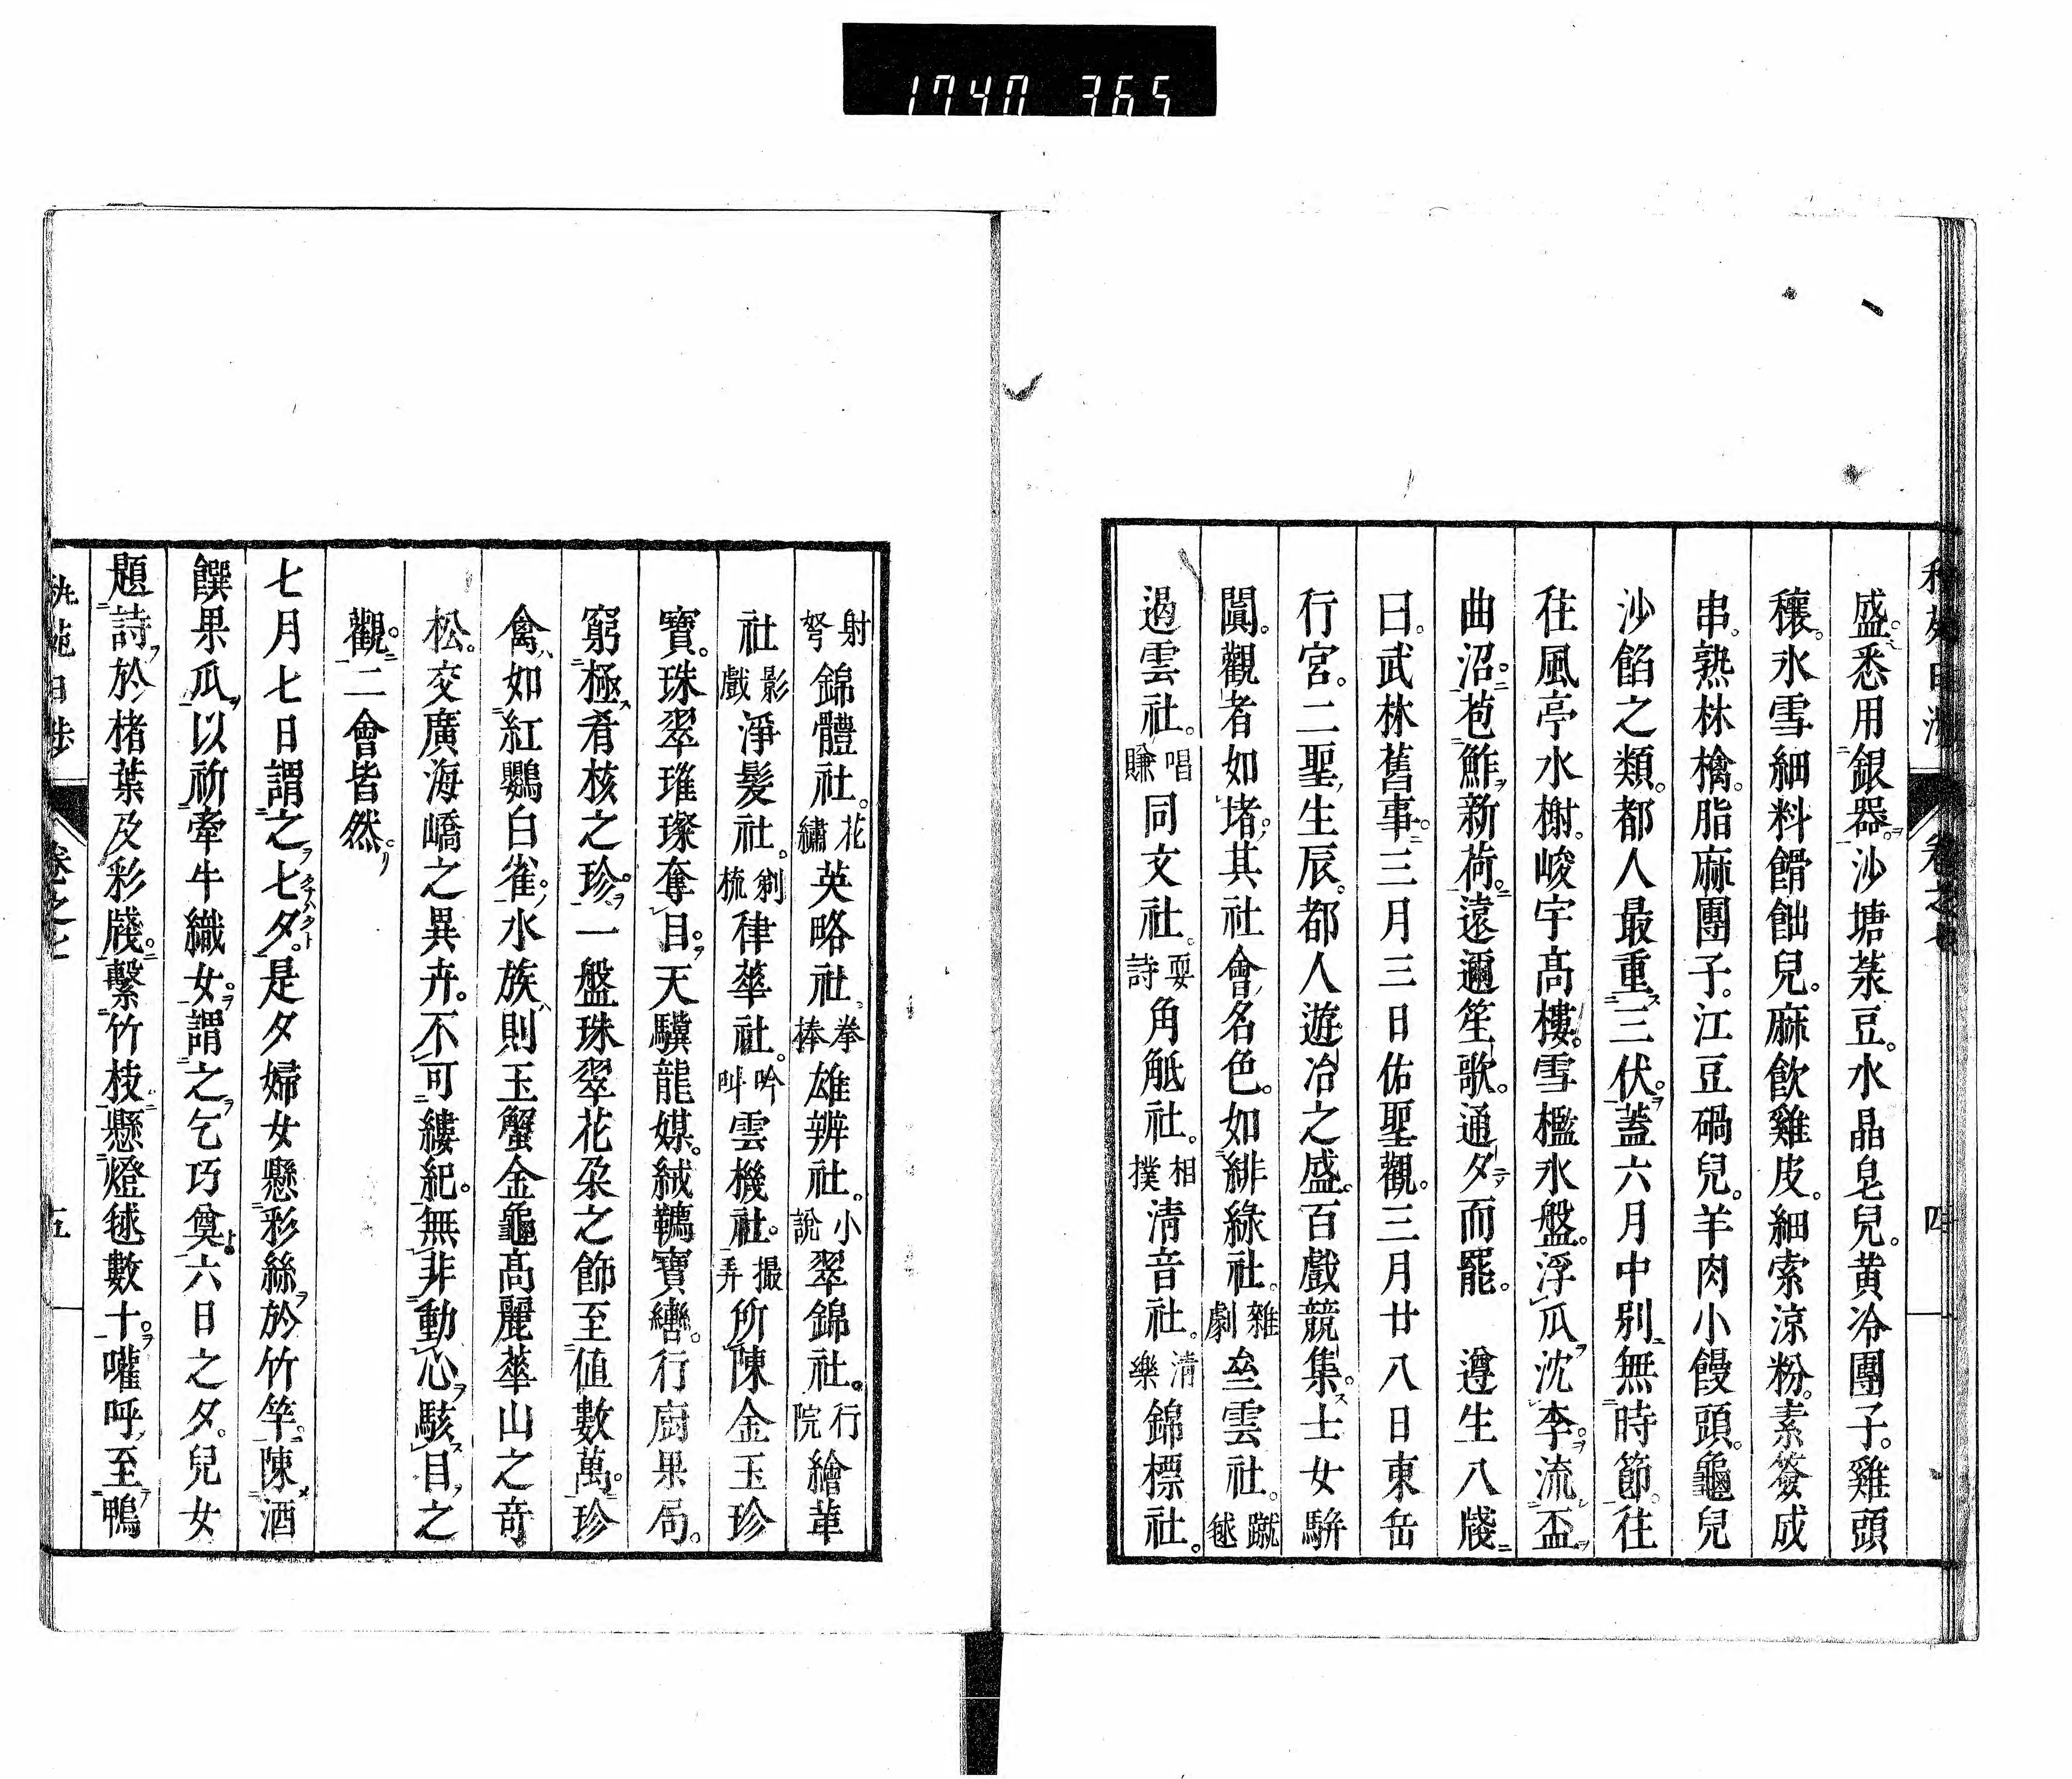 1740 365
盛。悉用銀器。沙塘菉豆。水晶皂兒。黄冷團子。雞頭
穰。氷雪細料餶飿兒。麻飲雞皮。細索涼粉。素簽成
串。熟林檎。脂麻團子。江豆碢兒。羊肉小饅頭。龜兒
沙餡之類。都人最重三伏。蓋六月中別無時節。往
往風亭水榭。峻宇髙樓。雪檻氷盤。浮瓜沈李。流盃
曲沼。苞鮓新荷。遠邇笙歌。通夕而罷。 遵生八牋
曰。武林舊事。三月三日佑聖觀。三月廿八日東岳
行宮。二聖生辰。都人遊冶之盛。百戲競集。士女駢
闐。觀者如堵。其社會名色。如緋綠社。雜劇 垒雲社。蹴毬
遏雲社。唱賺 同文社。耍詩 角觝社。相撲 清音社。清樂 錦標社。
射弩 錦體社。花繡 英略社。拳棒 雄辨社。小說 翠錦社。行院 繪革
社 影戲 淨髮社。剃梳 律華社。吟叫 雲機社。撮弄 所陳金玉珍
寶。珠翠璀璨奪目。天驥龍媒。絨韉寶轡。行厨果局。
窮極肴核之珍。一盤珠翠花朶之飾至値數萬。珍
禽如紅鸚白雀。水族則玉蟹金龜髙麗華山之奇
松。交廣海嶠之異卉。不可縷紀。無非動心駭目之
觀。二會皆然。
七月七日謂之七夕。是夕婦女懸彩絲於竹竿。陳酒
饌果瓜以祈牽牛織女。謂之乞巧奠。六日之夕。兒女
題詩於楮葉及彩牋。繫竹枝懸燈毬數十。嚾呼至鴨
卷之七
五